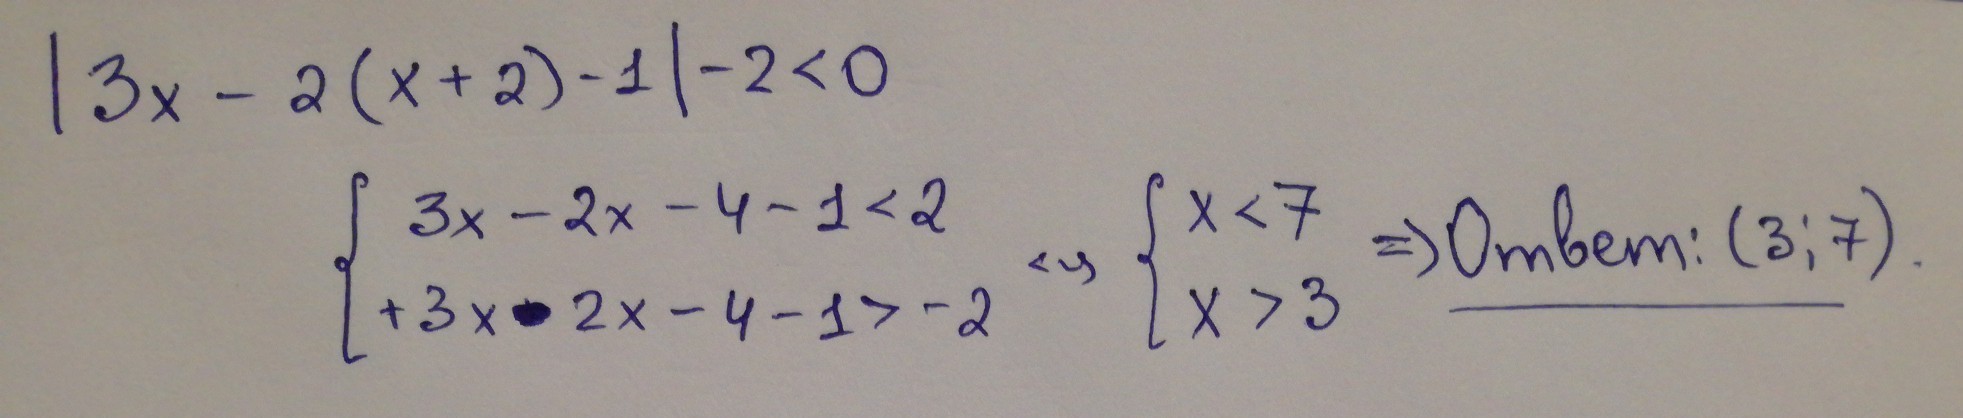 |3x - 2(x+2) - 1| - 2 < 0
{ 3x - 2x - 4 - 1 < 2
+3x - 2x - 4 - 1 > -2 <=> { x < 7
x > 3 => Ответ: (3; 7).